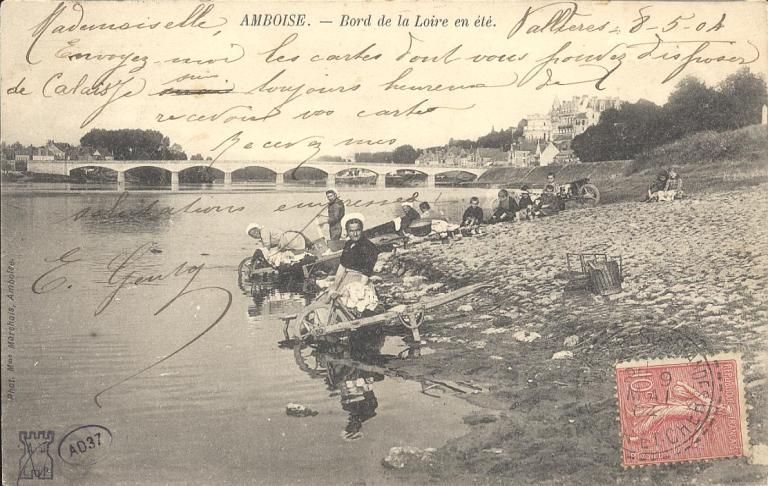 AMBOISE. — Bord de la Loire en été.
Mademoiselle, Vallères 8-5-04
Envoyez-moi les cartes dont vous pouvez disposer
de Calais je suis toujours heureux de
recevoir vos cartes
Recevez mes
salutations empressées
E.
Phot. Mme Marchais, Amboise.
AD37
10
LOIR-ET-CHER